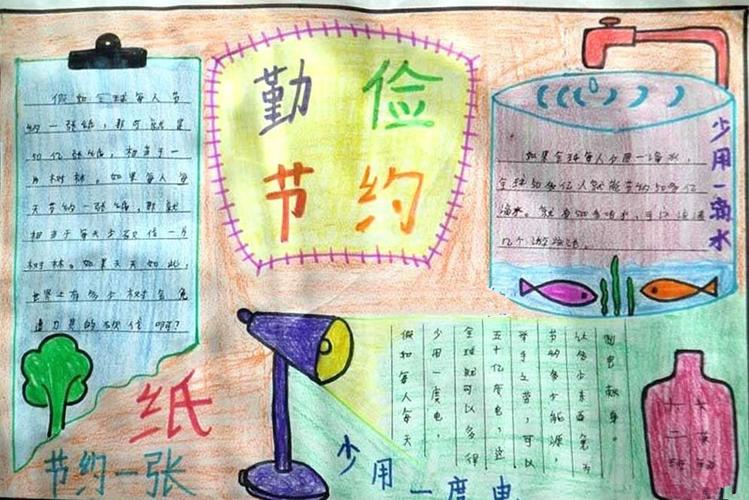 勤俭
节约
假如全球每人节
约一张纸，那可就是
50亿张纸，相当于一
片树林。如果每人每
天节约一张纸，那就
相当于每天少砍伐一片
树林。如果天天如此，
世界上有多少树会免
遭刀具的砍伐啊？
节约一张
纸
少用一滴水
如果全球每人少用一滴水，
全球50多亿人就能节约50多亿
滴水。
几个游泳池。
少用一度电
假如每人每天
少用一度电，
全球就可以多得
五十亿度电，这
举手之劳，可以
节约多少能源，
让多少东西免为
用电献身。
六
二
班